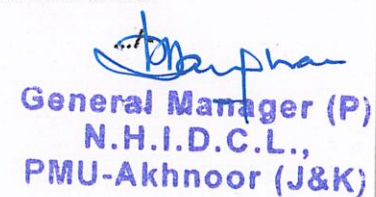 General Manager (P)
N.H.I.D.C.L.,
PMU-Akhnoor (J&K)